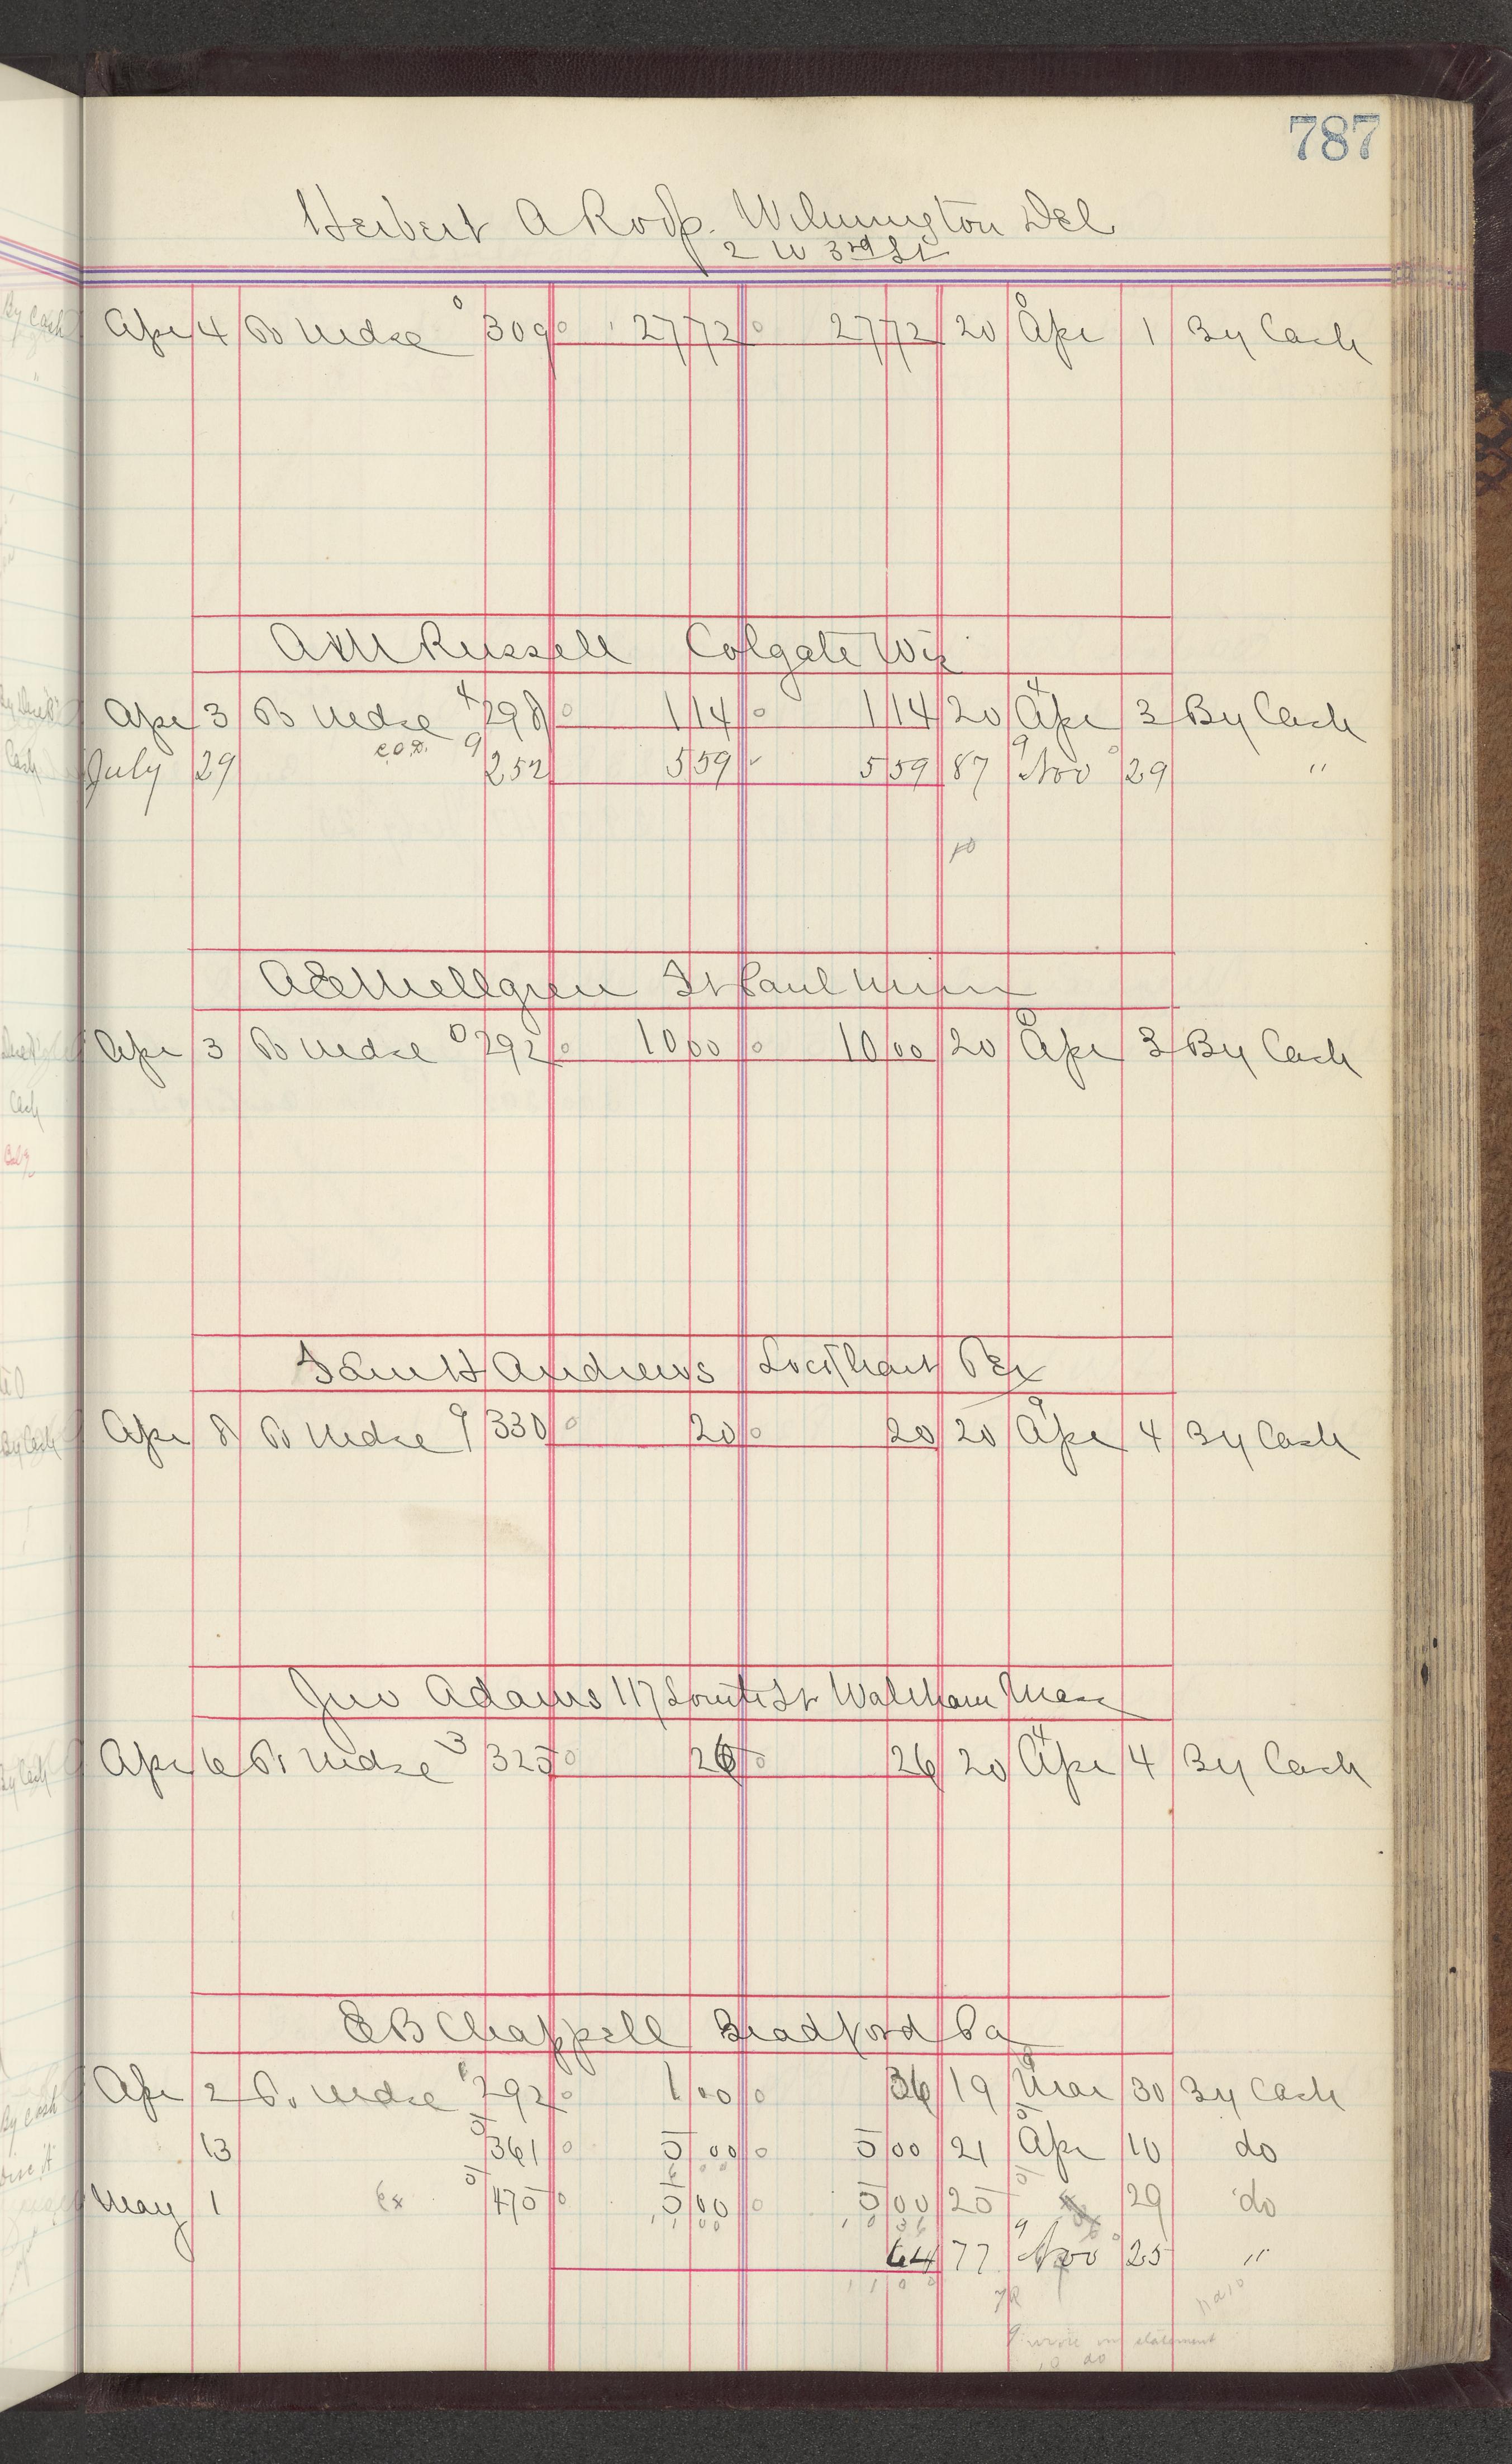 787
Herbert A Roop. Wilmington Del
2 W 3rd St
Apr 4 To Mdse 0 309 27 72 27 72 20 0 Apr 1 By Cash
A M Russell Colgate Wis
Apr 3 To Mdse 4 298 1 14 1 14 20 4 Apr 3 By Cash
July 29 C.O.D. 9 252 5 59 5 59 87 9 Nov 29 "
A E Mellgren St Paul Minn
Apr 3 To Mdse 0 292 10 00 10 00 20 0 Apr 3 By Cash
Sam H Andrews Lockhart Tex
Apr 8 To Mdse 9 330 20 20 20 9 Apr 4 By Cash
Jno Adams 117 South St Waltham Mass
Apr 6 To Mdse 3 325 26 26 20 4 Apr 4 By Cash
E B Chappell Bradford Pa
Apr 2 To Mdse 292 1 00 36 19 Mar 30 By Cash
13 5 361 5 00 5 00 21 5 Apr 10 do
6 00
May 1 Ex 5 475 5 00 5 00 25 5 29 do
11 00 10 36
64 77 9 Nov 25 "
11 00
wrote on statement
do